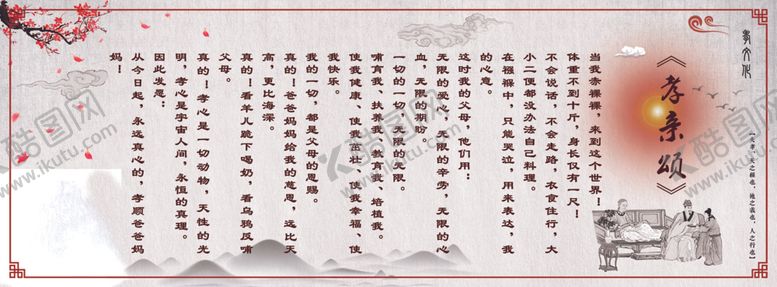 孝文化
【夫孝，天之经也，地之义也，人之行也】
《孝亲颂》
当我赤裸裸，来到这个世界！
体重不到十斤，身长仅有一尺！
不会说话，不会走路，衣食住行，大
小二便都没办法自己料理。
在襁褓中，只能哭泣，用来表达，我
的心意。
这时我的父母，他们用：
无限的爱心，无限的辛劳，无限的心
血，无限期盼，
一切的一切，无限的无限。
哺育我、扶养我、教育我、培植我。
使我健康、使我茁壮、使我幸福、使
我快乐。
我的一切，都是父母的恩赐。
真的！爸爸妈妈给我的慈恩，远比天
高，更比海深。
真的！看羊儿跪下喝奶，看乌鸦反哺
父母。
真的！孝心是一切动物，天性的光
明，孝心是宇宙人间，永恒的真理。
因此发愿：
从今日起，永远真心的，孝顺爸爸妈
妈！
酷图网
www.ikutu.com